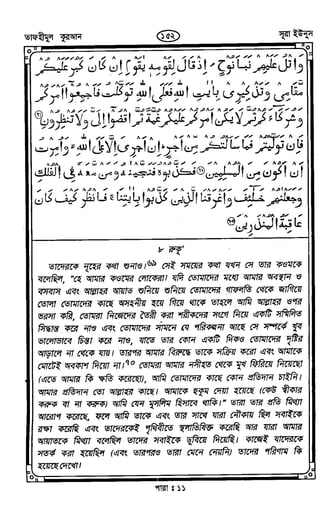 তাফহীমুল কুরআন
১৫২
সূরা ইউনুস
وَاتْلُ عَلَيْهِمْ نَبَأَ نُوحٍ إِذْ قَالَ لِقَوْمِهِ يٰقَوْمِ إِنْ كَانَ كَبُرَ عَلَيْكُمْ
مَّقَامِي وَتَذْكِيرِي بِاٰيٰتِ اللهِ فَعَلَى اللهِ تَوَكَّلْتُ فَأَجْمِعُوا أَمْرَكُمْ
وَشُرَكَاءَكُمْ ثُمَّ لَا يَكُنْ أَمْرُكُمْ عَلَيْكُمْ غُمَّةً ثُمَّ اقْضُوا إِلَيَّ وَلَا تُنْظِرُونِ
فَإِنْ تَوَلَّيْتُمْ فَمَا سَأَلْتُكُمْ مِّنْ أَجْرٍ إِنْ أَجْرِيَ إِلَّا عَلَى اللهِ وَأُمِرْتُ
أَنْ أَكُونَ مِنَ الْمُسْلِمِينَ فَكَذَّبُوهُ فَنَجَّيْنٰهُ وَمَنْ مَّعَهُ فِي الْفُلْكِ
وَجَعَلْنٰهُمْ خَلٰئِفَ وَأَغْرَقْنَا الَّذِينَ كَذَّبُوا بِاٰيٰتِنَا فَانْظُرْ كَيْفَ كَانَ
عَاقِبَةُ الْمُنْذَرِينَ
৮ রুকূ'
তাদেরকে নূহের কথা শুনাও।৬৯ সেই সময়ের কথা যখন সে তার কওমকে
বলেছিল, "হে আমার কওমের লোকেরা! যদি তোমাদের মধ্যে আমার অবস্থান ও
বসবাস এবং আল্লাহর আয়াত শুনিয়ে শুনিয়ে তোমাদের গাফলতি থেকে জাগিয়ে
তোলা তোমাদের কাছে অসহনীয় হয়ে গিয়ে থাকে তাহলে আমি আল্লাহর ওপর
ভরসা করি, তোমরা নিজেদের তৈরী করা শরীকদের সংগে নিয়ে একটি সম্মিলিত
সিদ্ধান্ত করে নাও এবং তোমাদের সামনে যে পরিকল্পনা আছে সে সম্পর্কে খুব
ভালোভাবে চিন্তা করে নাও, যাতে তার কোন একটি দিকও তোমাদের দৃষ্টির
আড়ালে না থেকে যায়। তারপর আমার বিরুদ্ধে তাকে সক্রিয় করো এবং আমাকে
মোটেই অবকাশ দিয়ো না।৭০ তোমরা আমার নসীহত থেকে মুখ ফিরিয়ে নিয়েছো
(এতে আমার কি ক্ষতি করেছো), আমি তোমাদের কাছে কোন প্রতিদান চাইনি।
আমার প্রতিদান তো আল্লাহর কাছে। আমাকে হুকুম দেয়া হয়েছে (কেউ স্বীকার
করুক বা না করুক) আমি যেন মুসলিম হিসাবে থাকি।" তারা তার প্রতি মিথ্যা
আরোপ করেছে, ফলে আমি তাকে এবং তার সাথে যারা নৌকায় ছিল সবাইকে
রক্ষা করেছি এবং তাদেরকেই পৃথিবীতে স্থলাভিষিক্ত করেছি আর যারা আমার
আয়াতকে মিথ্যা বলেছিল তাদের সবাইকে ডুবিয়ে দিয়েছি। কাজেই যাদেরকে
সতর্ক করা হয়েছিল (এবং তারপরও তারা মেনে নেয়নি) তাদের পরিণাম কি
হয়েছে দেখো!
পারা : ১১